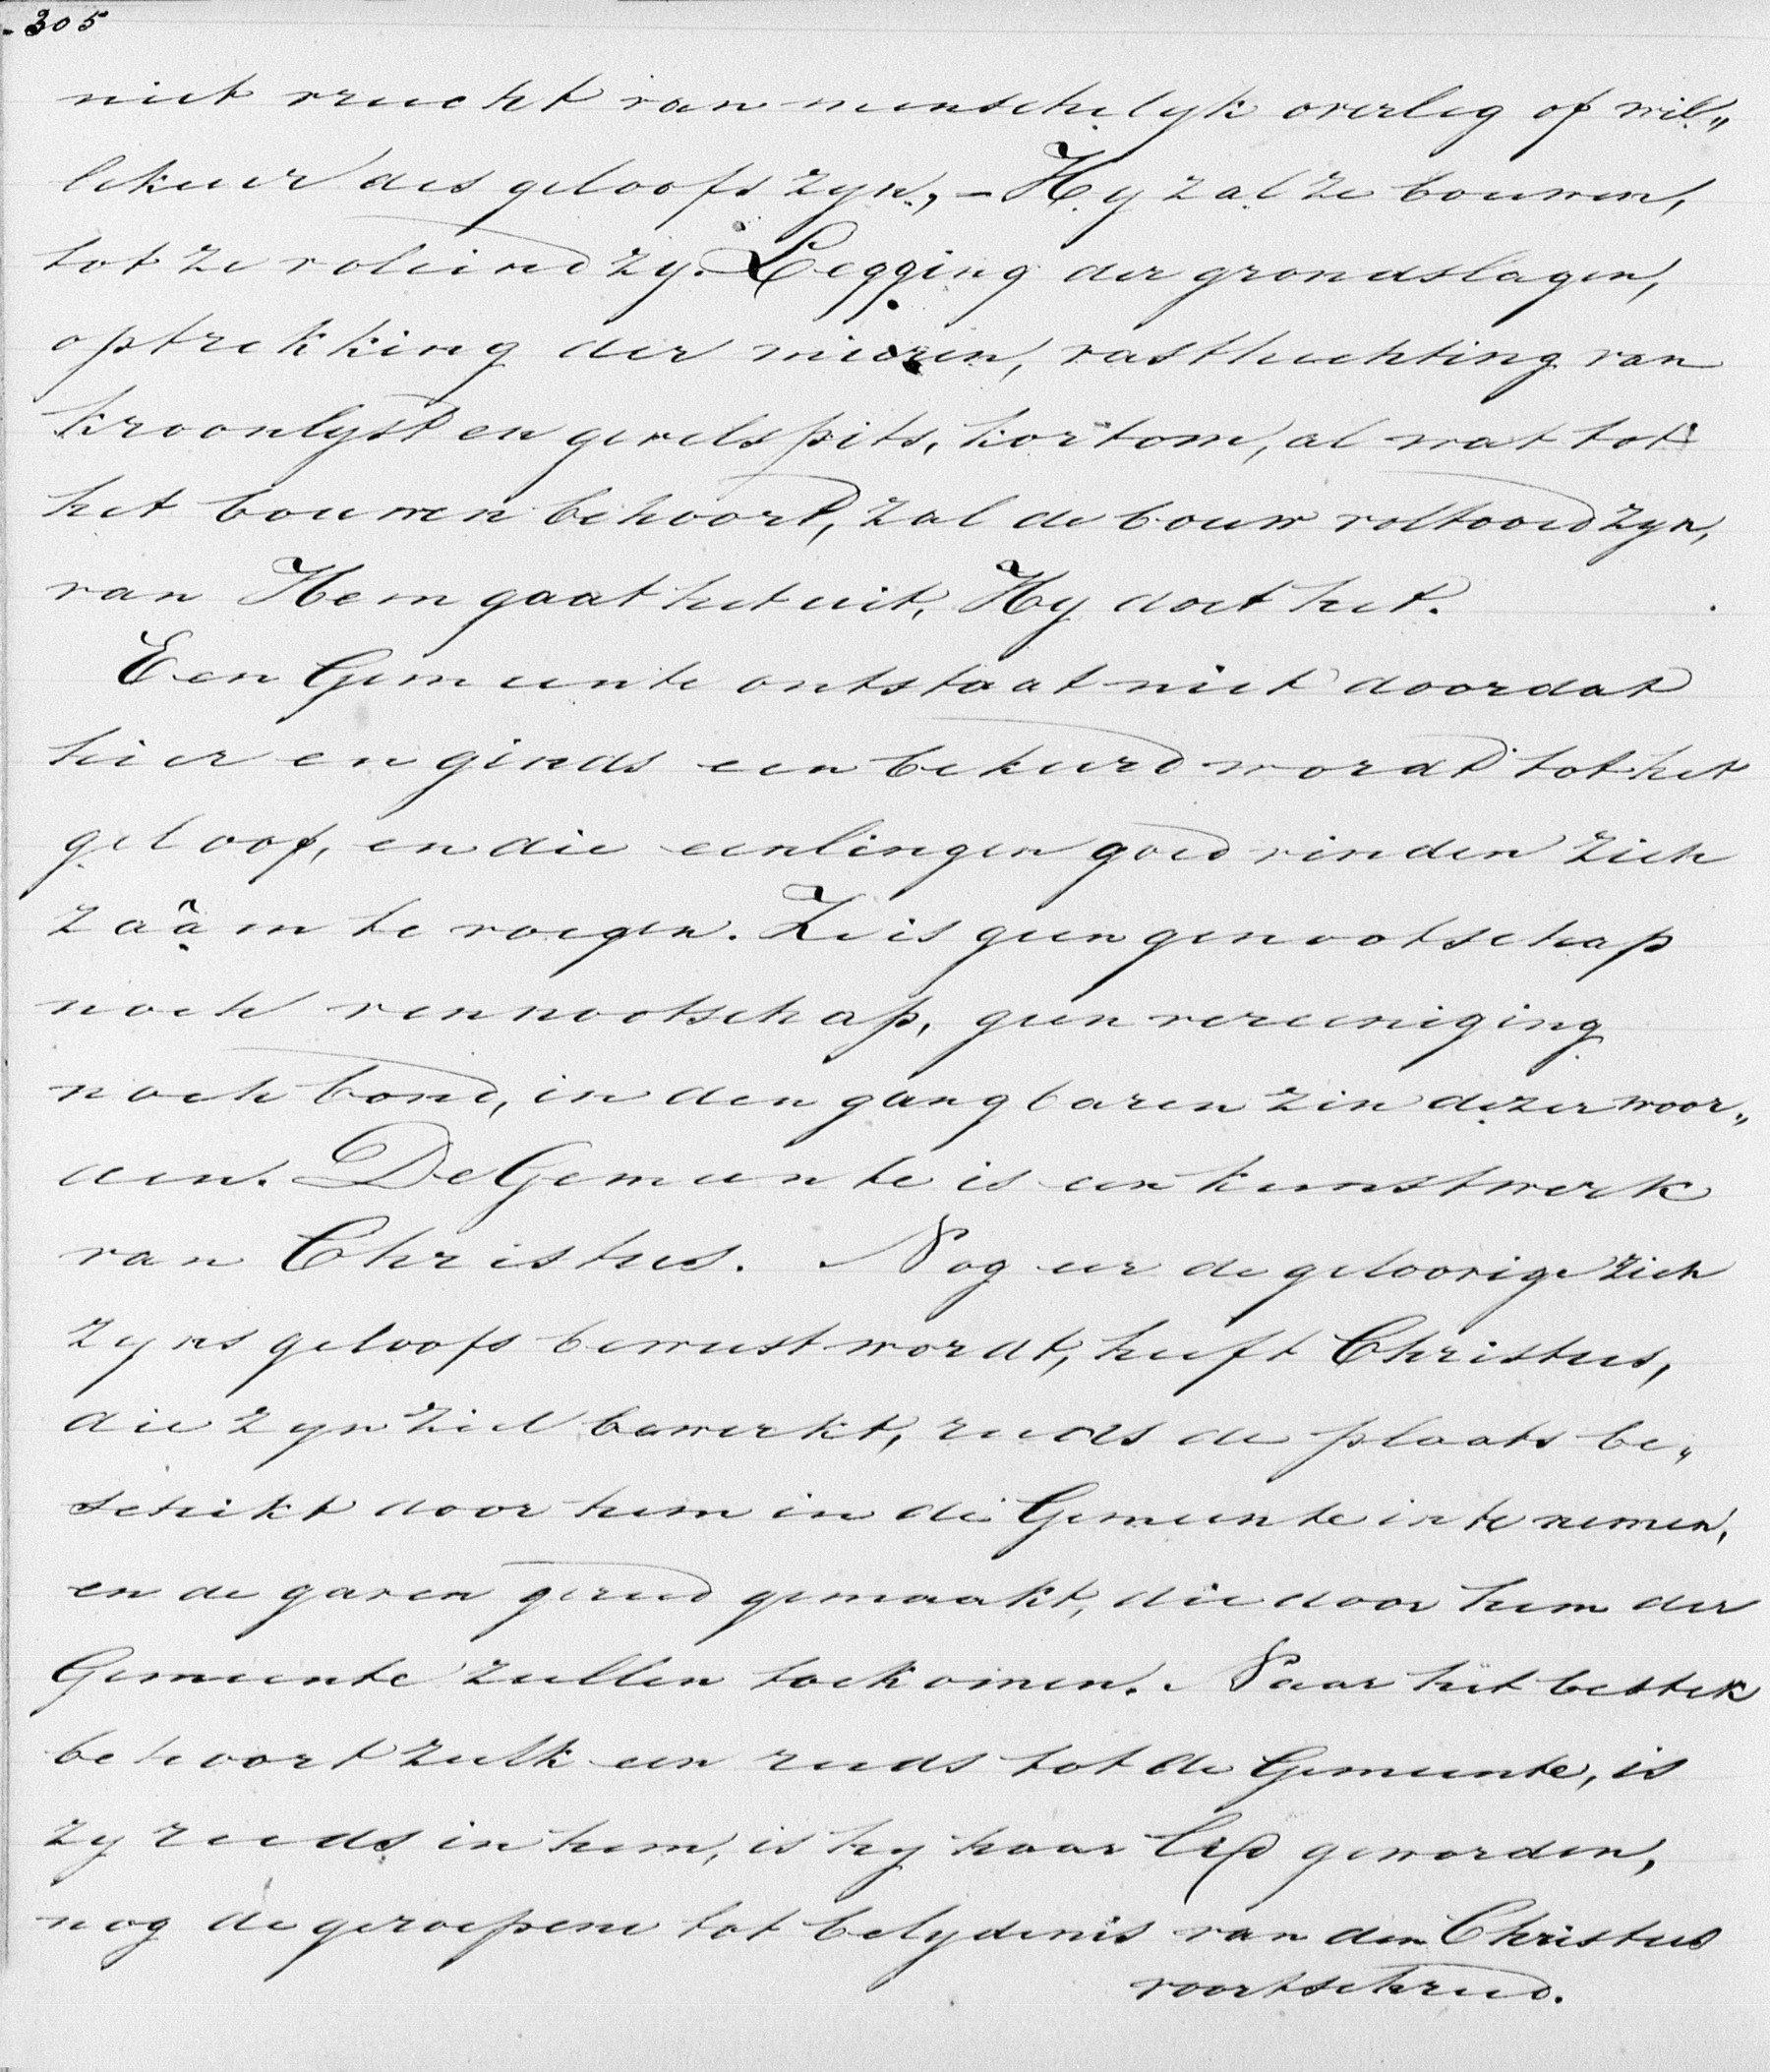 305
niet vrucht van menschelyk overleg of wil„
lekeur des geloofs zyn, – Hy zal ze bouwen,
tot ze voleind zy. Legging der grondslagen,
optrekking der muren, vasthechting van
kroonlyst en gevelspits, kortom, al wat tot
het bouwen behoort, zal de bouw voltooid zyn,
van Hem gaat het uit, Hy doet het.
Een Gemeente ontstaat niet doordat
hier en ginds een bekeerd wordt tot het
geloof, en die eenlingen goed vinden zich
zaâm te voegen. Ze is geen genootschap
noch vennootschap, geen vereeniging
noch bond, in den gangbaren zin dezer woor„
den. De Gemeente is een kunstwerk
van Christus. Nog eer de geloovige zich
zyns geloofs bewust wordt, heeft Christus,
die zyn ziel bewerkt, reeds de plaats be„
schikt door hem in de Gemeente in te nemen,
en de gaven gereed gemaakt, die door hem der
Gemeente zullen toekomen. Naar het bestek
behoort zulk een reeds tot de Gemeente, is
zy reeds in hem, is hy haar lid geworden,
nog de geroepene tot belydenis van den Christus
voortschreed.